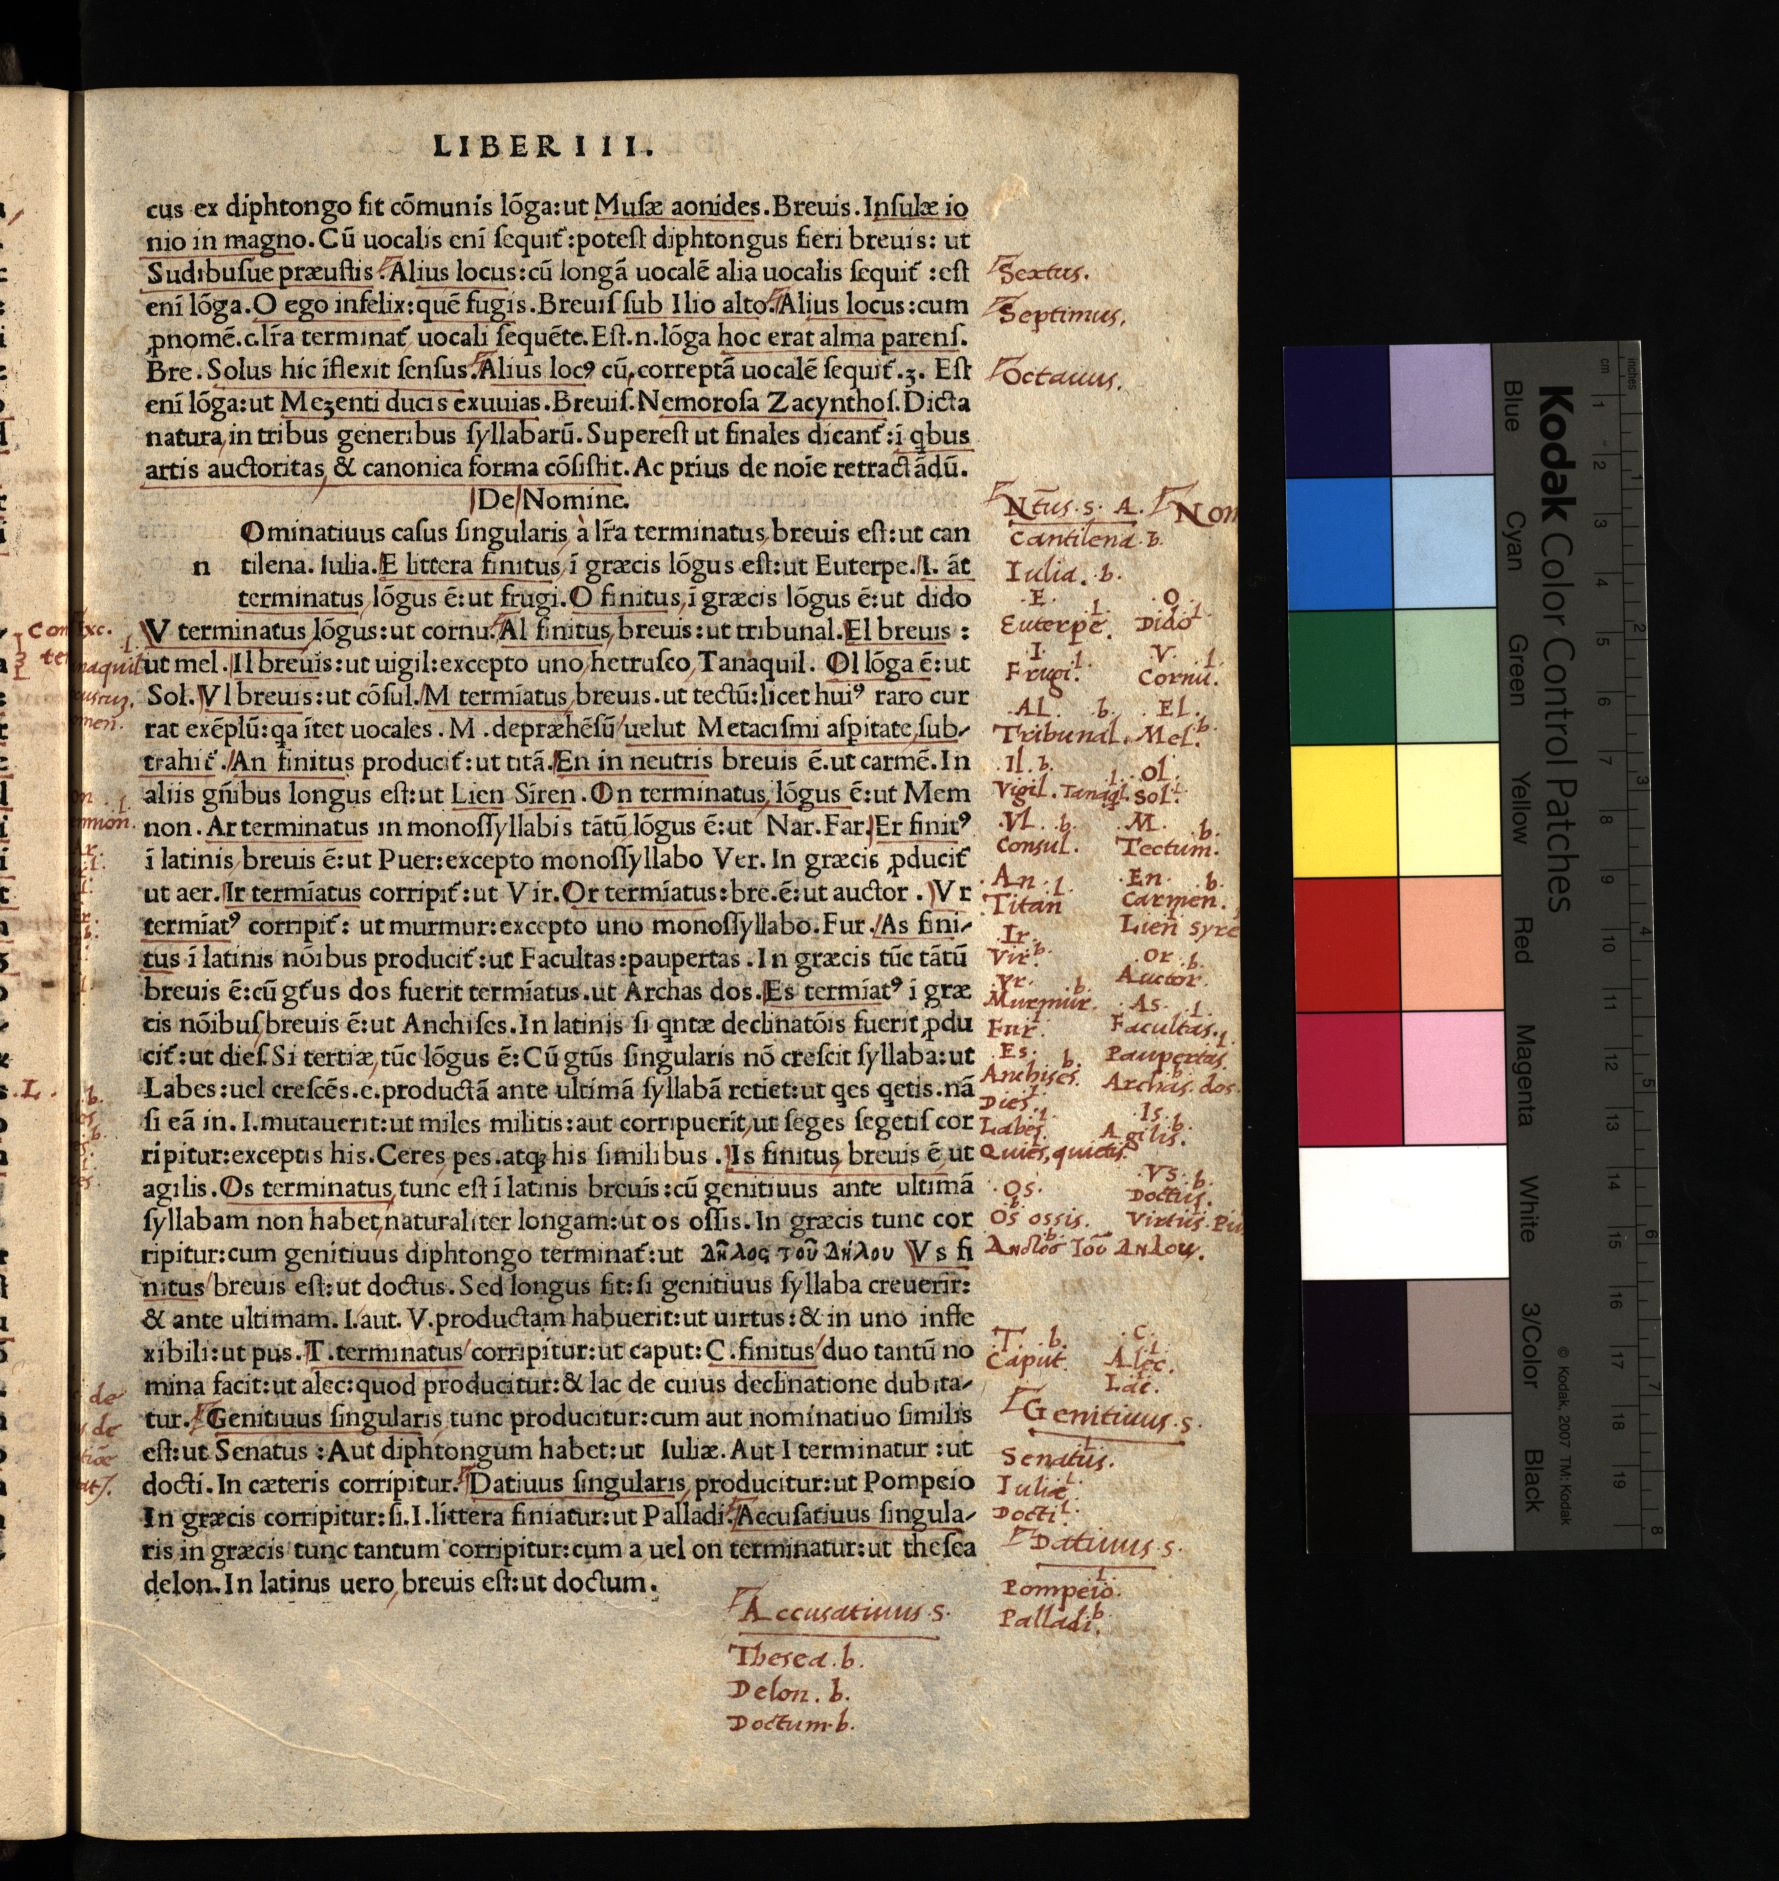 LIBER III.
cus ex diphtongo fit cōmunis lōga:ut Muſæ aonides.Breuis.Inſulæ io
nio in magno.Cū uocalis enī ſequit̃:poteſt diphtongus fieri breuis: ut
Sudibuſue præuſtis.Alius locus:cū longā uocalē alia uocalis ſequit̃ :eſt
enī lōga.O ego infelix:quē fugis.Breuiſ ſub Ilio alto.Alius locus:cum
ꝓnomē.c.lr̃a terminat̃ uocali ſequēte.Eſt.n.lōga hoc erat alma parenſ.
Bre.Solus hic īflexit ſenſus.Alius locꝰ cū,correptā uocalē ſequit̃.ʒ. Eſt
enī lōga:ut Meʒenti ducis exuuias.Breuiſ.Nemoroſa Zacynthoſ.Dicta
natura,in tribus generibus ſyllabarū.Supereſt ut finales dicant̃:ī qbus
artis auctoritas,& canonica forma cōſiſtit.Ac prius de noīe retractādū.
De Nomine.
Ominatiuus caſus ſingularis,à lr̃a terminatus,breuis eſt:ut can
n tilena. Iulia.E littera finitus,ī græcis lōgus eſt:ut Euterpe.I. āt
terminatus,lōgus ē:ut frugi.O finitus,ī græcis lōgus ē:ut dido
V terminatus,lōgus:ut cornu.Al finitus,breuis:ut tribunal.El breuis :
ut mel.Il breuis:ut uigil:excepto uno,hetruſco,Tanaquil. Ol lōga ē:ut
Sol.Vl breuis:ut cōſul.M termīatus,breuis.ut tectū:licet huiꝰ raro cur
rat exēplū:qa ītet uocales.M.depræhēſū/uelut Metaciſmi aſpitate,ſub-
trahit̃.An finitus producit̃:ut titā.En in neutris breuis ē.ut carmē.In
aliis gñibus longus eſt:ut Lien Siren.On terminatus,lōgus ē:ut Mem
non.Ar terminatus in monoſſyllabis tātū lōgus ē:ut Nar.Far.Er finitꝰ
ī latinis,breuis ē:ut Puer:excepto monoſſyllabo Ver. In græcis ꝓducit̃
ut aer.Ir termīatus corripit̃:ut Vir.Or termīatus:bre.ē:ut auctor .Vr
termīatꝰ corripit̃: ut murmur:excepto uno monoſſyllabo.Fur.As fini-
tus ī latinis nōibus producit̃:ut Facultas:paupertas .In græcis tūc tātū
breuis ē:cū gt̃us dos fuerit termīatus.ut Archas dos.Es termīatꝰ ī græ
cis nōibuſ,breuis ē:ut Anchiſes.In latinis ſi qntæ declinatōis fuerit,ꝓdu
cit̃:ut dieſ.Si tertiæ,tūc lōgus ē:Cū gtūs ſingularis nō creſcit ſyllaba:ut
Labes:uel creſcēs.e.productā ante ultimā ſyllabā retiet:ut qes qetis.nā
ſi eā in. I.mutauerit:ut miles militis:aut corripuerit,ut ſeges ſegetiſ cor
ripitur:exceptis his.Ceres,pes.atqꝫ his ſimilibus .Is finitus,breuis ē,ut
agilis.Os terminatus,tunc eſt ī latinis breuis:cū genitiuus ante ultimā
ſyllabam non habet,naturaliter longam:ut os oſſis.In græcis tunc cor
ripitur:cum genitiuus diphtongo terminat̃:ut Δῆλος τοῦ Δήλου Vs fi
nitus/breuis eſt:ut doctus.Sed longus fit:ſi genitiuus ſyllaba creuerit:
& ante ultimam.I.aut. V.productam habuerit:ut uirtus:& in uno infle
xibili:ut pus.T.terminatus/corripitur:ut caput:C.finitus/duo tantū no
mina facit:ut alec:quod producitur:& lac,de cuius declinatione dubita-
tur.Genitiuus ſingularis,tunc producitur:cum aut nominatiuo ſimilis
eſt:ut Senatus :Aut diphtongum habet:ut Iuliæ.Aut I terminatur :ut
docti.In cæteris corripitur.Datiuus ſingularis,producitur:ut Pompeio
In græcis corripitur:ſi.I.littera finiatur:ut Palladi.Accuſatiuus ſingula-
ris in græcis tunc tantum corripitur:cum a uel on terminatur:ut theſea
delon.In latinis uero,breuis eſt:ut doctum.
Sextus.
Septimus.
Octauus.
Ntūs.s. A. Nom
Cantilena.b.
Iulia.b.
.E. .O.
l. l.
Euterpe. Dido
.I. l. .V. l.
Frugi. Cornu.
.AL. b. .El.
Tribunal. Mel.b.
.Il.b. .ol.
Vigil.Tanaql. Sol.
.Vl. b. .M. b.
Consul. Tectum.
.An.l. .En. b.
Titan Carmen.
.Ir. Lien Syre
Vir.b. .or.b.
.Vr. b. Auctor.
Murmur. .As. l.
Fur. Facultas.
.Es. b. Paupertas.
Anchises. Archas.dos.
Dies. .Is.
Labes. Agilis.
Quies,quietis. .Vs.b.
.Os. Doctus.
Os ossis. Virtus.
T. b. .C.
Caput Alec.
Lac.
Genitiuus.s.
Senatus.
Iuliæ
Docti.
Datiuus.s.
Pompeio.
Palladi.
Accusatiuus.s.
Thesea.b.
Delon.b.
Doctum.b.
Exc.
.L.
de
Kodak Color Control Patches
Blue Cyan Green Yellow Red Magenta White 3/Color Black
© Kodak, 2007 TM: Kodak
cm 1 2 3 4 5 6 7 8 9 10 11 12 13 14 15 16 17 18 19
inches 1 2 3 4 5 6 7 8